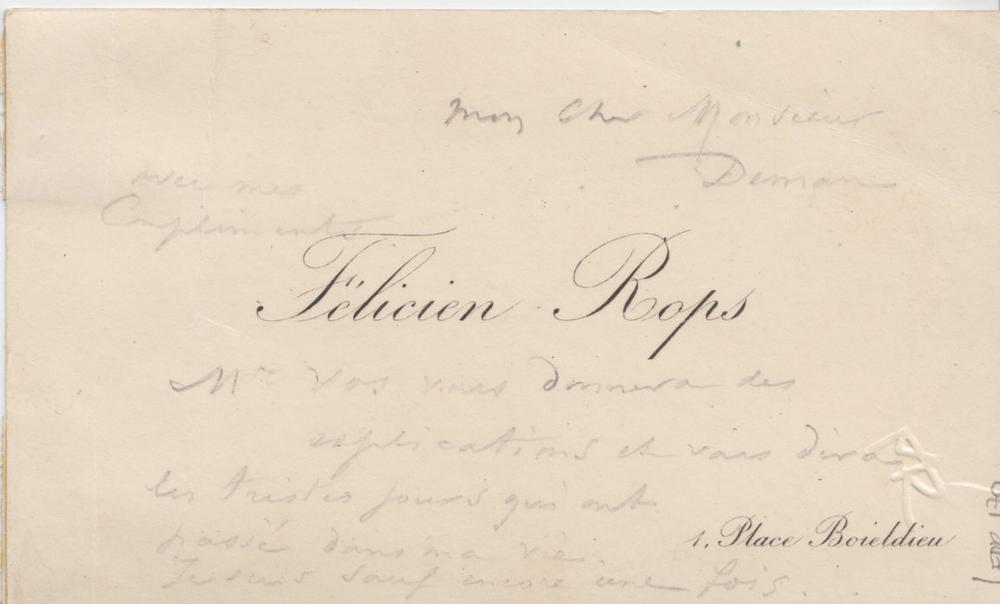 mon cher Monsieur
Deman
avec mes
Compliments
Félicien Rops
Mr Vos vous donnera des
explications et vous dira
les tristes jours qui ont
passé dans ma vie.
Je suis sauf encore une fois.
1, Place Boieldieu